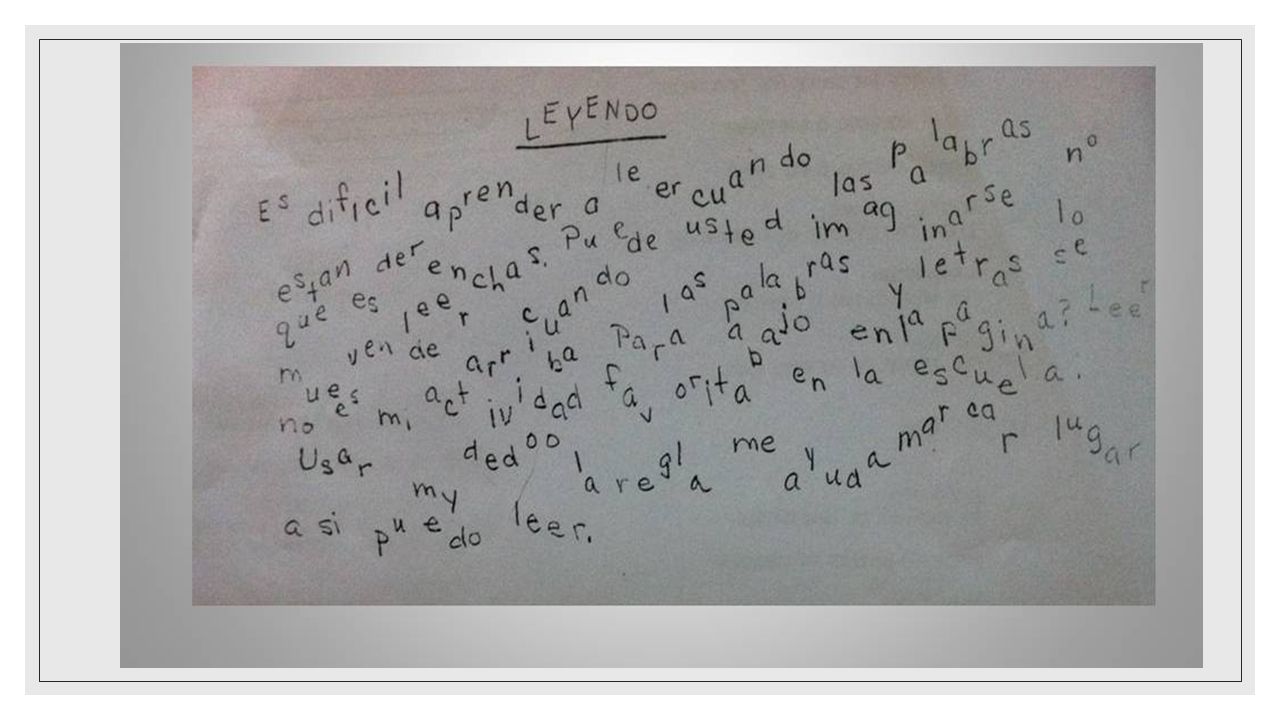 LEYENDO
Es dificil aprender a leer cuando las palabras no
estan derenchas. Puede usted imaginarse lo
que es leer cuando las palabras y letras se
muesven de arriba Para abajo en la pagina? Leer
no es mi actividad favorita en la escuela.
Usar my dedo o la regla me ayuda a marcar lugar
a si puedo leer.